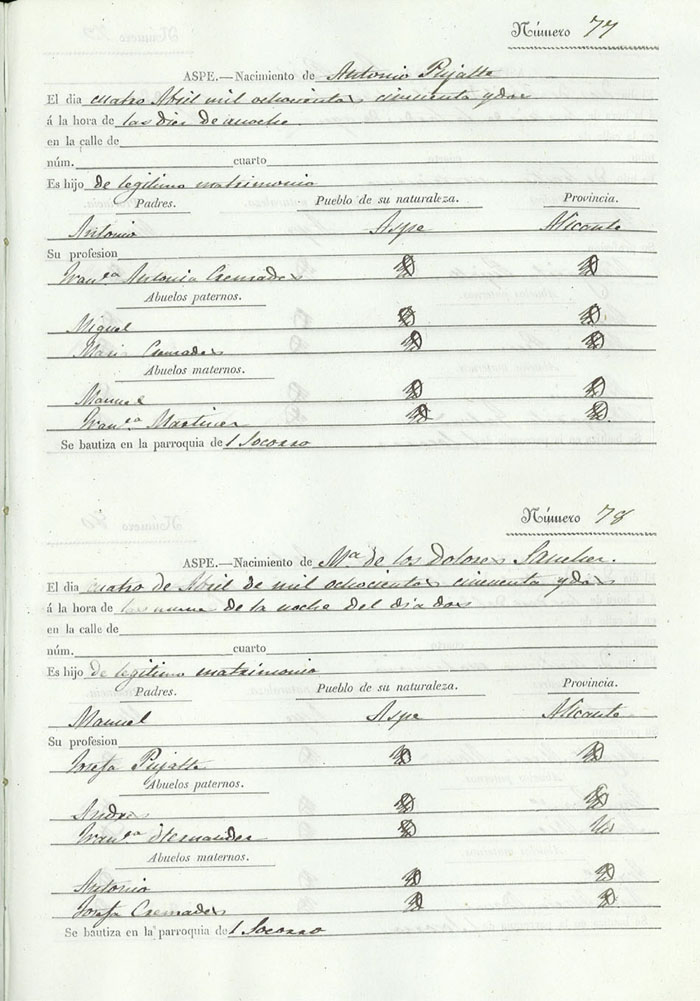 Número 77
ASPE.—Nacimiento de Antonio Pujalte
El dia cuatro Abril mil ochocientos cincuenta y dos
á la hora de las dies de anoche
en la calle de
núm. cuarto
Es hijo de legitimo matrimonio
Padres. Pueblo de su naturaleza. Provincia.
Antonio Aspe Alicante
Su profesion
Franca Antonia Cremades
Abuelos paternos.
Miguel
Maria Cremades
Abuelos maternos.
Manuel
Franca Martinez
Se bautiza en la parroquia del Socorro
Número 78
ASPE.—Nacimiento de Ma de los Dolores Sanchez.
El dia cuatro de Abril de mil ochocientos cincuenta y dos
á la hora de las nueve de la noche del dia dos
en la calle de
núm. cuarto
Es hijo de legitimo matrimonio
Padres. Pueblo de su naturaleza. Provincia.
Manuel Aspe Alicante
Su profesion
Josefa Pujalte
Abuelos paternos.
Andres
Franca Hernandez
Abuelos maternos.
Antonio
Josefa Cremades
Se bautiza en la parroquia del Socorro